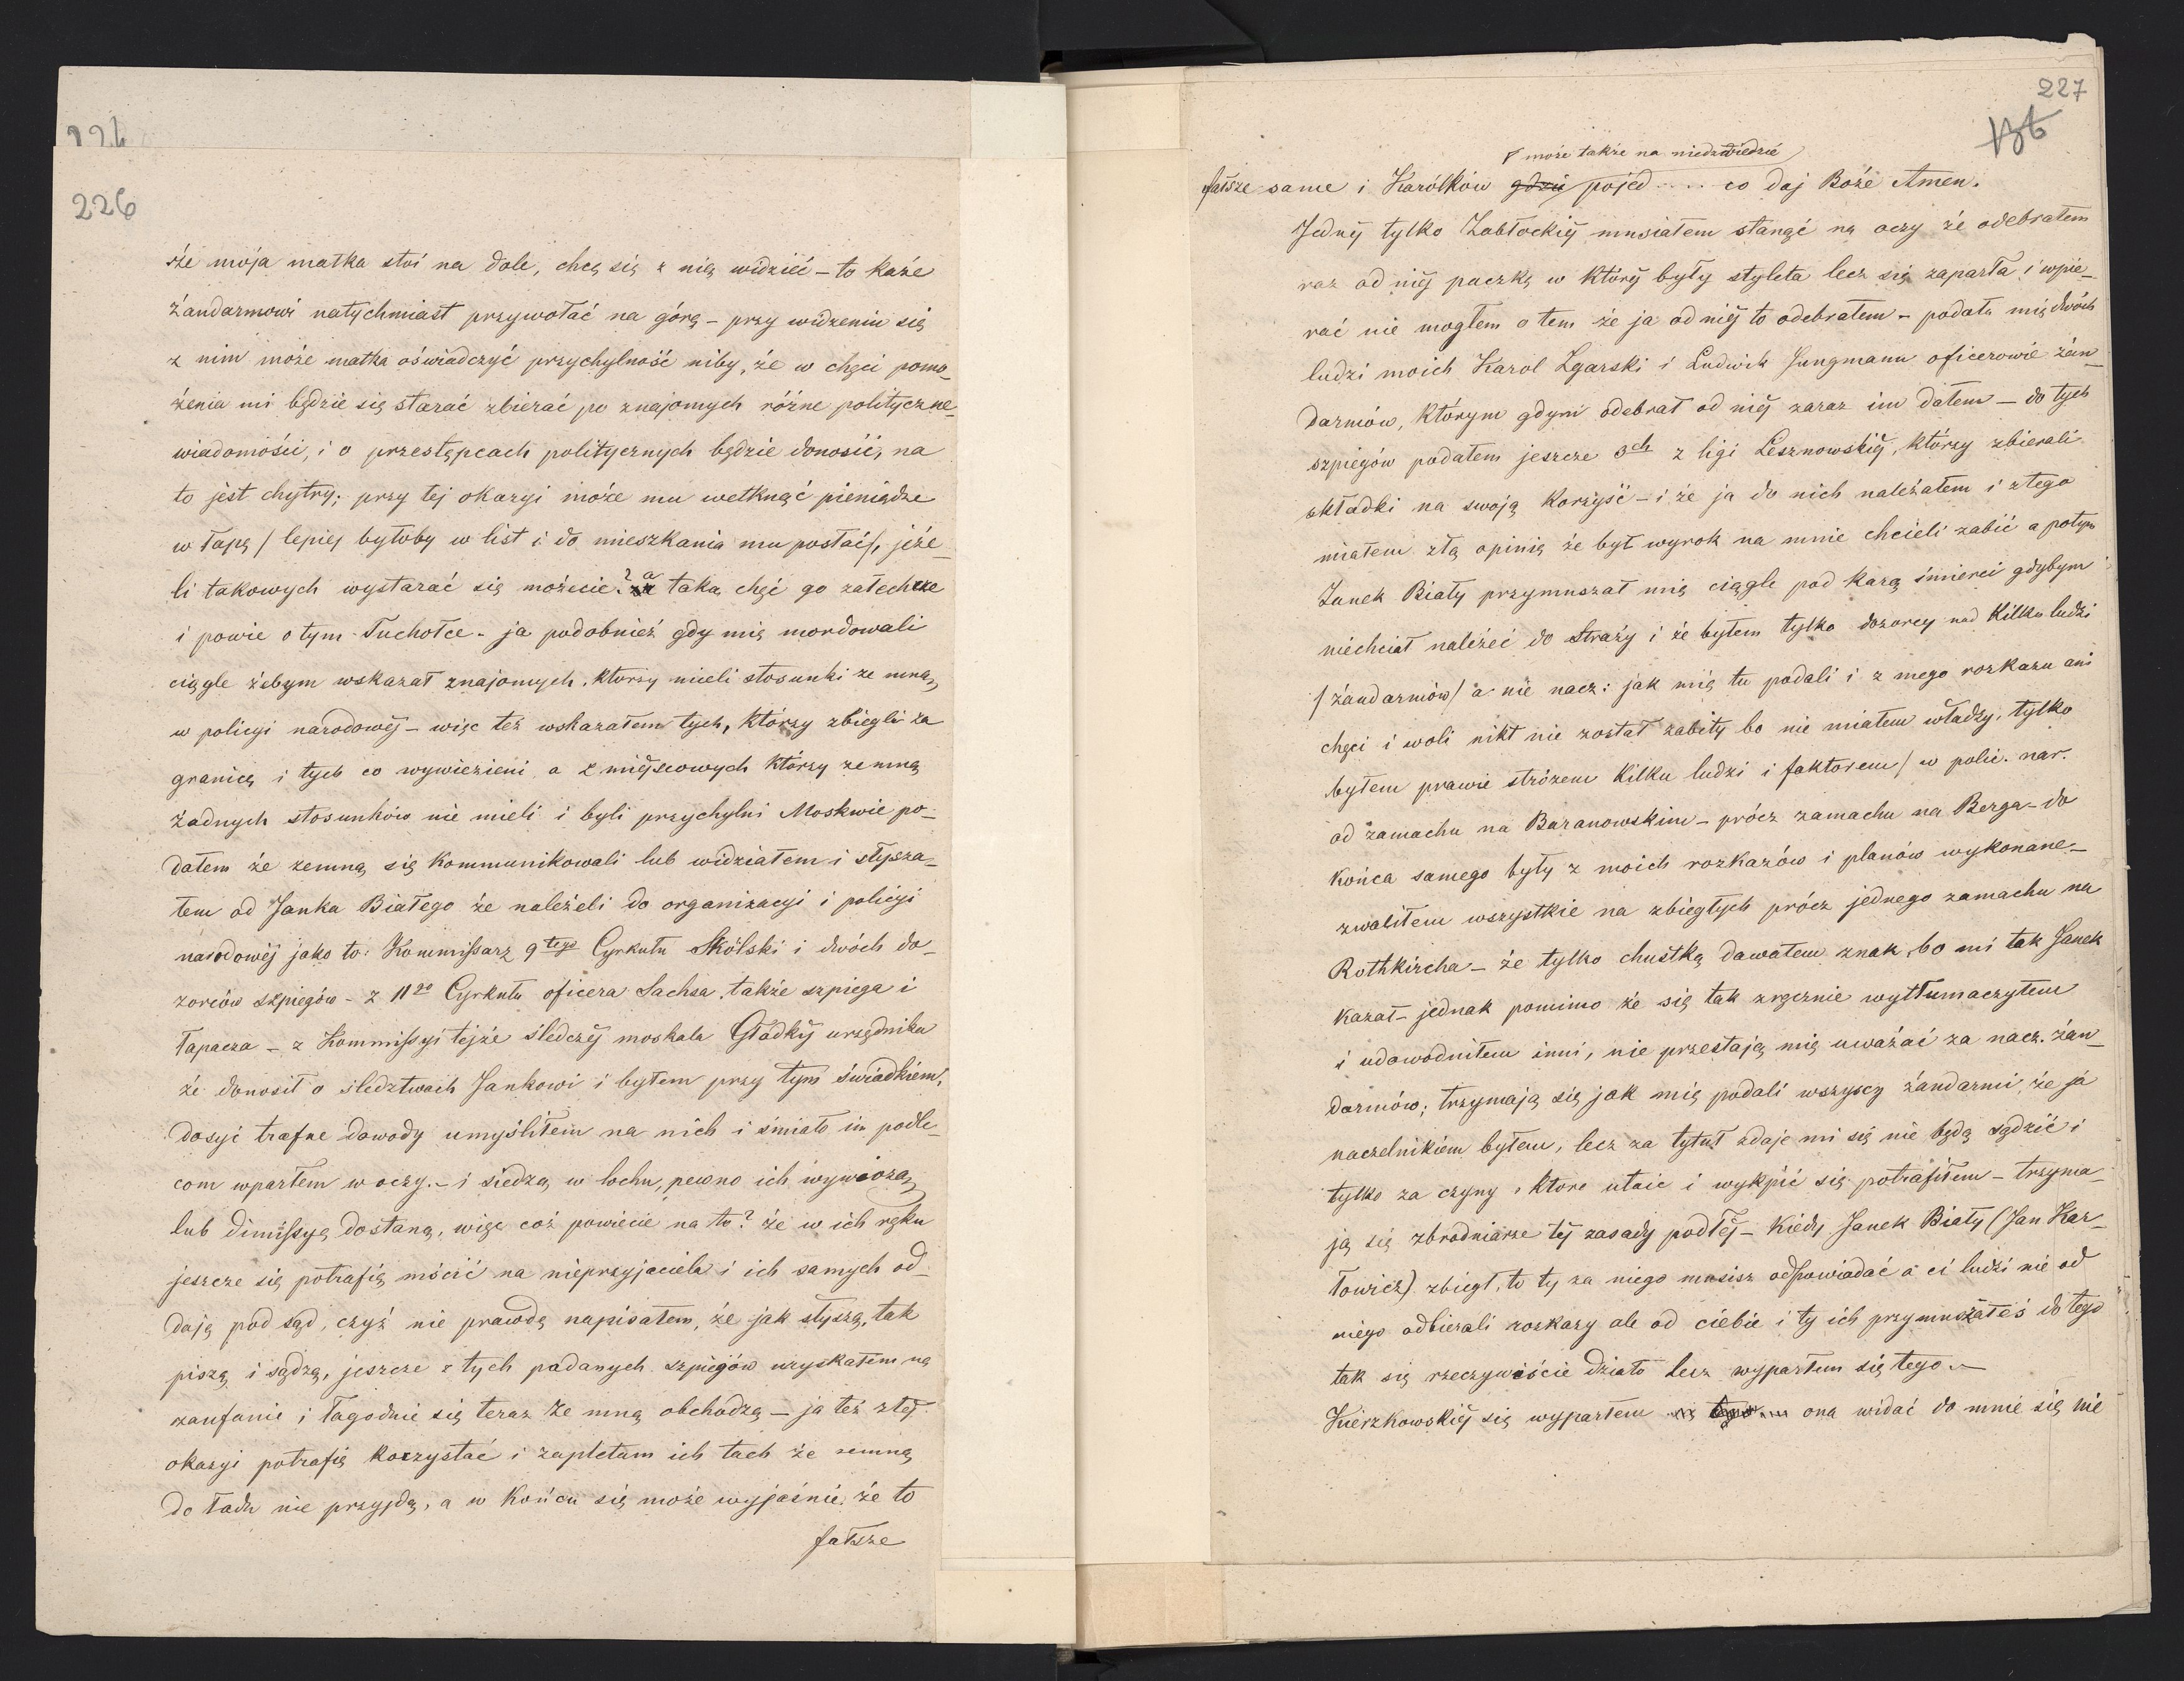 226
że moja matka stoi na dole, chcę się z nią widzieć – to każe
żandarmowi natychmiast przywołać na górę – przy widzeniu się
z nim może matka oświadczyć przychylność niby, że w chęci pomo_
żenia mi będzie się starać zbierać po znajomych różne polityczne
wiadomości, i o przestępcach politycznych będzie donosić, na
to jest chytry; przy tej okazyi może mu wetknąć pieniądze
w łapę / lepiej byłoby w list i do mieszkania mu posłać /, jeże_
li takowych wystarać się możecie? a taka chęć go załechcze
i powie o tym Tuchołce – ja podobnież gdy mię mordowali
ciągle żebym wskazał znajomych, którzy mieli stosunki ze mną,
w policyi narodowéj – więc też wskazałem tych, którzy zbiegli za
granicę i tych co wywiezieni, a z miejscowych którzy zemną
żadnych stosunków nie mieli i byli przychylni Moskwie po_
dałem że zemną się kommunikowali lub widziałem i słysza_
łem od Janka Białego że należeli do organizacyi i policyi
narodowéj jako to: Kommissarz 9tego Cyrkułu Skólski i dwóch do_
zorców szpiegów – z 11go Cyrkułu oficera Sachsa, także szpiega i
łapacza – z Kommissyi tejże śledczéj moskala Gładkij urzędnika
że donosił o śledztwach Jankowi i byłem przy tym świadkiem,
dosyć trafne dowody umyśliłem na nich i śmiało im podle_
com wparłem w oczy. – i siedzą w lochu, pewno ich wywiozą,
lub dimissyę dostaną, więc coż powiecie na to? że w ich ręku
jeszcze się potrafię mścić na nieprzyjaciela i ich samych od_
dają pod sąd, czyż nie prawdę napisałem, że jak słyszą, tak
piszą i sądzą, jeszcze z tych podanych szpiegów uzyskałem na
zaufanie i łagodnie się teraz ze mną obchodzą – ja też z téj
okazyi potrafię korzystać i zaplętam ich tach że zemną
do ładu nie przyjdą, a w końcu się może wyjaśnić, że to
fałsze
227
może także na niedźwiedzie
fałsze same i Karólków gdzie pojed.... co daj Boże Amen.
Jednéj tylko Zabłockiéj musiałem stanąć na oczy że odebrałem
raz od niéj paczkę w któréj były styleta lecz się zaparła i wpie_
rać nie mogłem o tem że ja od niéj to odebrałem – podała mię dwóch
ludzi moich Karol Zgarski i Ludwik Jungmann oficerowie żan_
darmów, którym gdym odebrał od niéj zaraz im dałem – do tych
szpiegów podałem jeszcze 3ch z ligi Lesznowskiéj, którzy zbierali
składki na swoją korzyść – i że ja do nich należałem i z tego
miałem złą opinię że był wyrok na mnie chcieli zabić a potym
Janek Biały przymuszał mię ciągle pod karą śmierci gdybym
niechciał należeć do Straży i że byłem tylko dozorcą nad kilku ludzi
/ żandarmów / a nie nacz: jak mię tu podali i z mego rozkazu ani
chęci i woli nikt nie został zabity bo nie miałem władzy, tylko
byłem prawie stróżem kilku ludzi i faktorem / w polic. nar.
od zamachu na Baranowskim – prócz zamachu na Berga – do
końca samego były z moich rozkazów i planów wykonane –
zwaliłem wszystkie na zbiegłych prócz jednego zamachu na
Rothkircha – że tylko chustką dawałem znak, bo mi tak Janek
kazał – jednak pomimo że się tak zręcznie wytłumaczyłem
i udowodniłem inni, nie przestają mię uważać za nacz. żan_
darmów; trzymają się jak mię podali wszyscy żandarmi, że ja
naczelnikiem byłem, lecz za tytuł zdaje mi się nie będą sądzić i
tylko za czyny, które utaić i wykpić się potrafiłem – trzyma_
ją się zbrodniarze téj zasady podłéj – kiedy Janek Biały (Jan Kar_
łowicz) zbiegł, to ty za niego musisz odpowiadać a ci ludzi nie od
niego odbierali rozkazy ale od ciebie i ty ich przymuszałeś do tego
tak się rzeczywiście działo lecz wyparłem się tego –
Kierzkowskiéj się wyparłem ona widać do mnie się nie